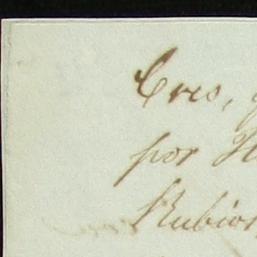 Cres,
por
Rubios